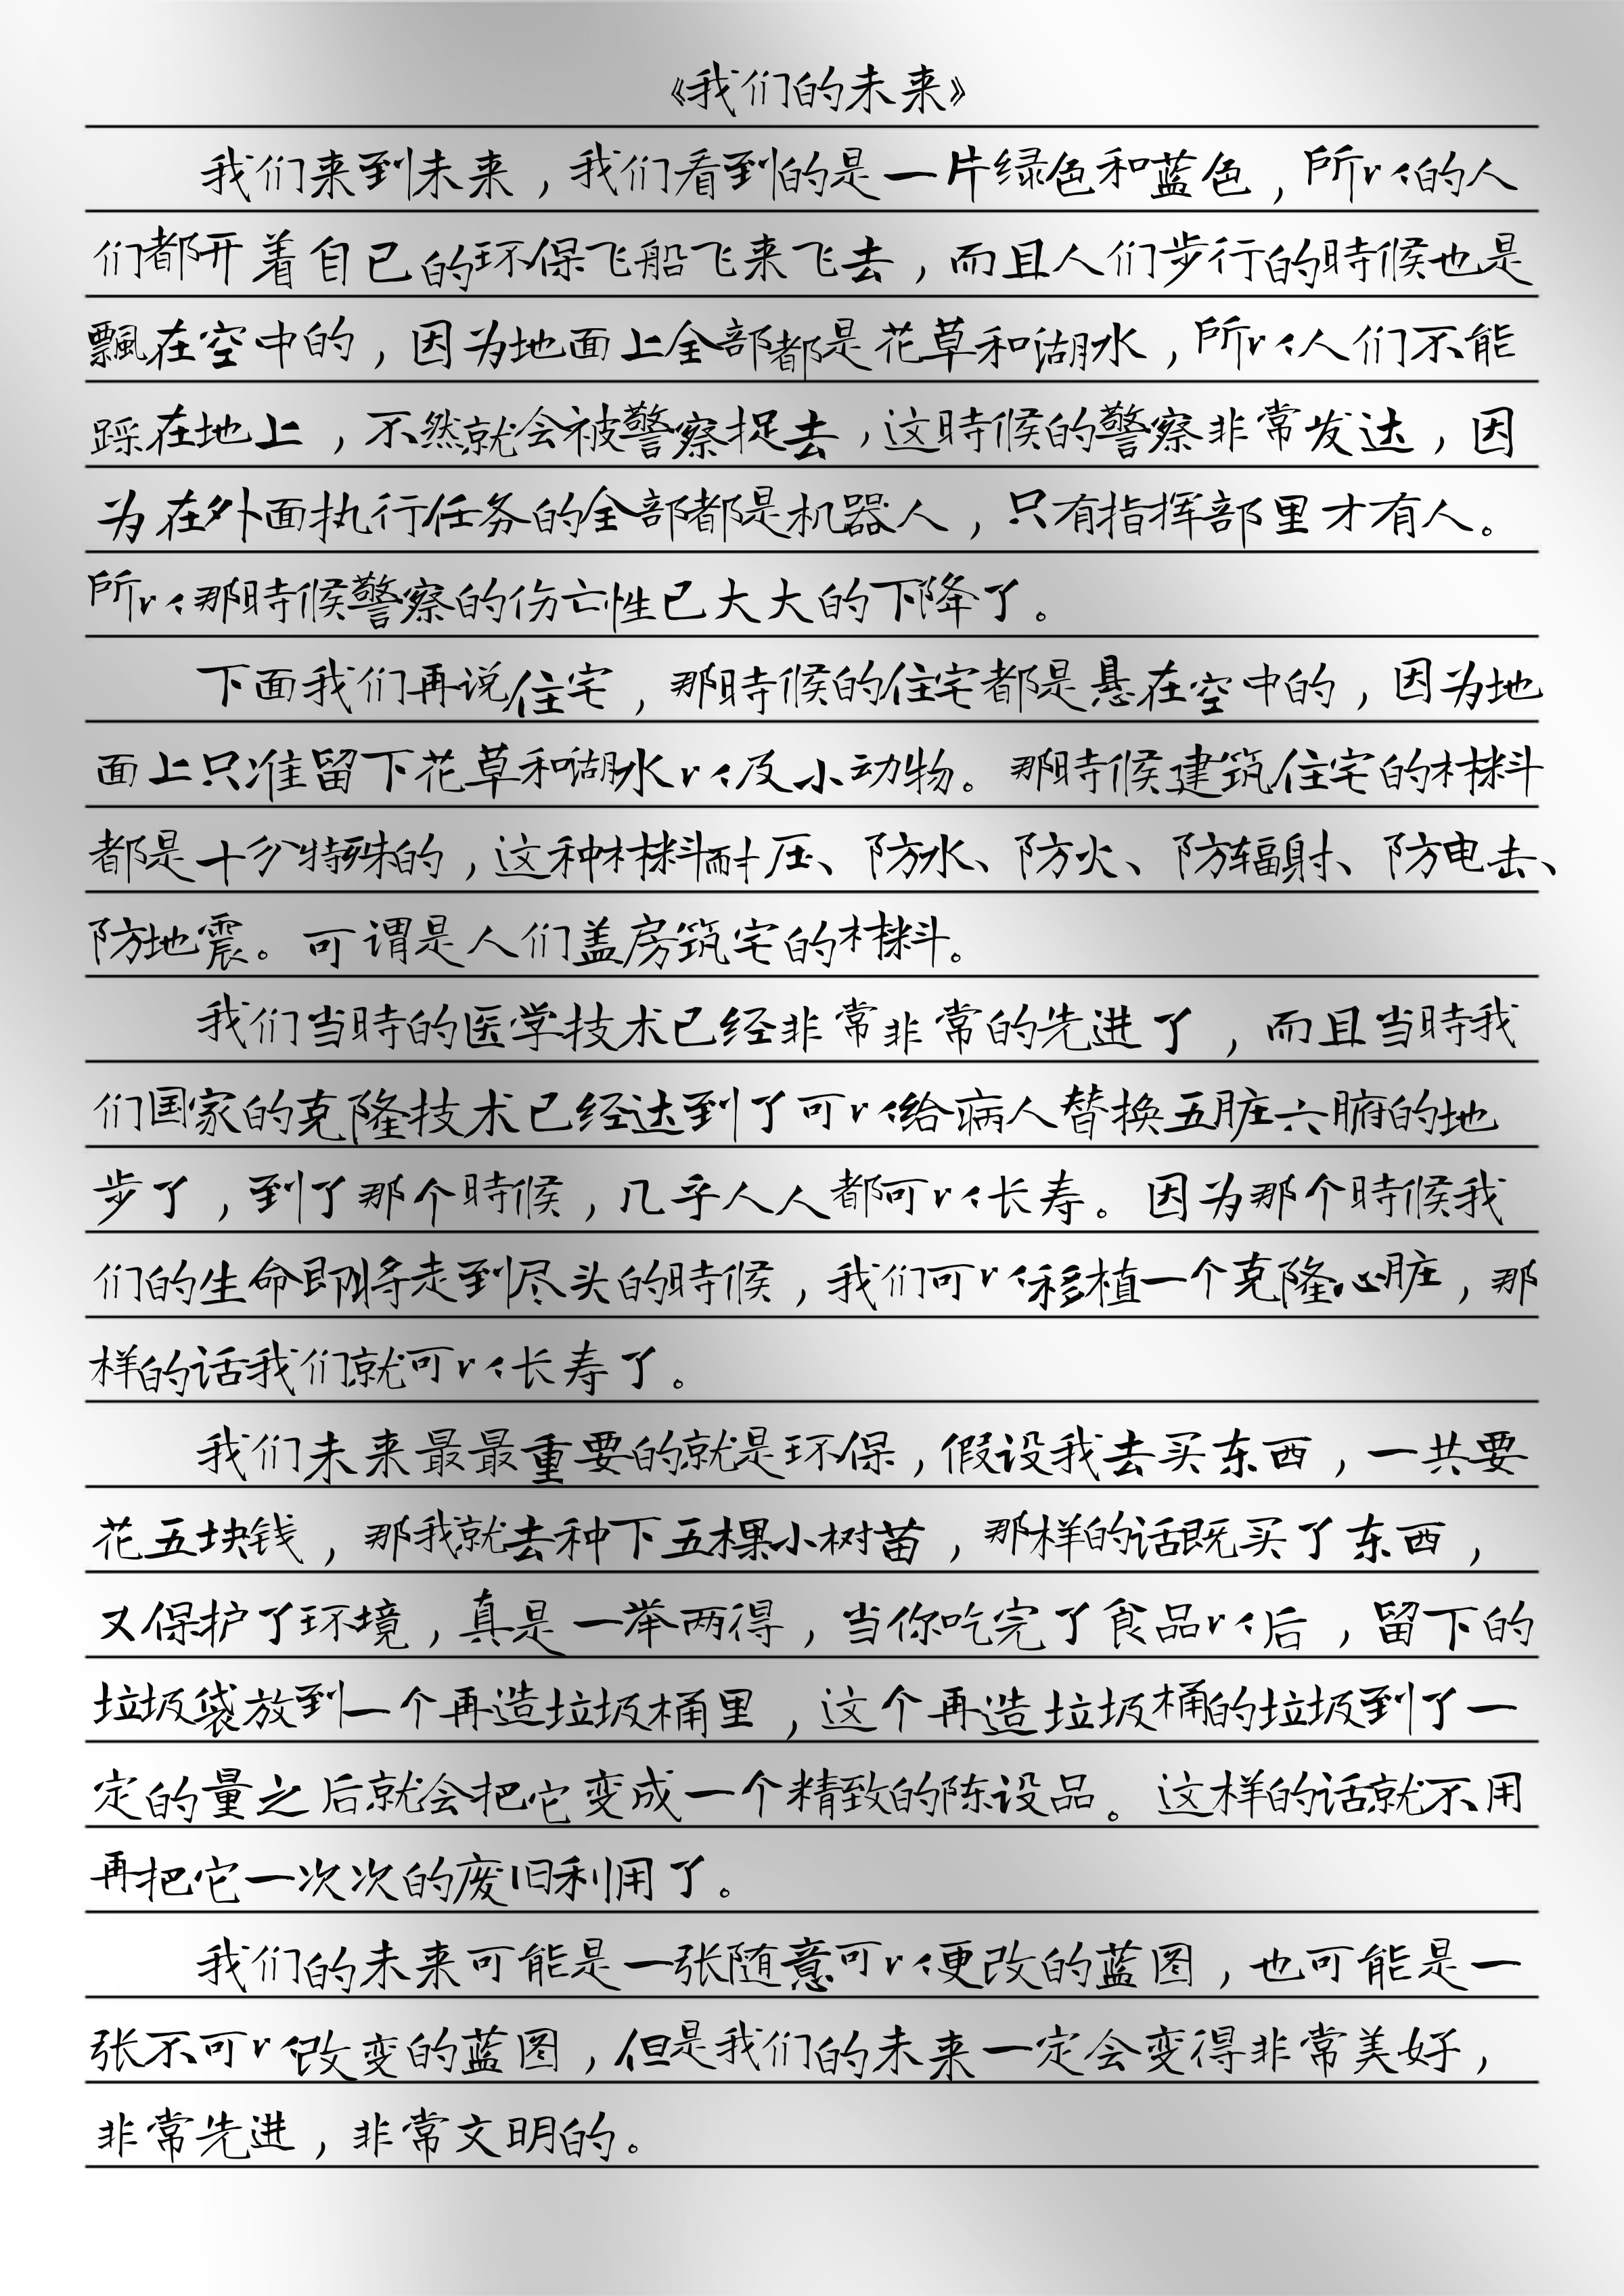 《我们的未来》
我们来到未来，我们看到的是一片绿色和蓝色，所以的人
们都开着自己的环保飞船飞来飞去，而且人们步行的時候也是
飄在空中的，因为地面上全部都是花草和湖水，所以人们不能
踩在地上，不然就会被警察捉去，这時候的警察非常发达，因
为在外面执行任务的全部都是机器人，只有指挥部里才有人。
所以那時候警察的伤亡性已大大的下降了。
下面我们再说住宅，那時候的住宅都是悬在空中的，因为地
面上只准留下花草和湖水以及小动物。那時候建筑住宅的材料
都是十分特殊的，这种材料耐压、防水、防火、防辐射、防电击、
防地震。可谓是人们盖房筑宅的材料。
我们当時的医学技术已经非常非常的先进了，而且当時我
们国家的克隆技术已经达到了可以给病人替换五脏六腑的地
步了，到了那个時候，几乎人人都可以长寿。因为那个時候我
们的生命即将走到尽头的時候，我们可以移植一个克隆心脏，那
样的话我们就可以长寿了。
我们未来最最重要的就是环保，假设我去买东西，一共要
花五块钱，那我就去种下五棵小树苗，那样的话既买了东西，
又保护了环境，真是一举两得，当你吃完了食品以后，留下的
垃圾袋放到一个再造垃圾桶里，这个再造垃圾桶的垃圾到了一
定的量之后就会把它变成一个精致的陈设品。这样的话就不用
再把它一次次的废旧利用了。
我们的未来可能是一张随意可以更改的蓝图，也可能是一
张不可以改变的蓝图，但是我们的未来一定会变得非常美好，
非常先进，非常文明的。